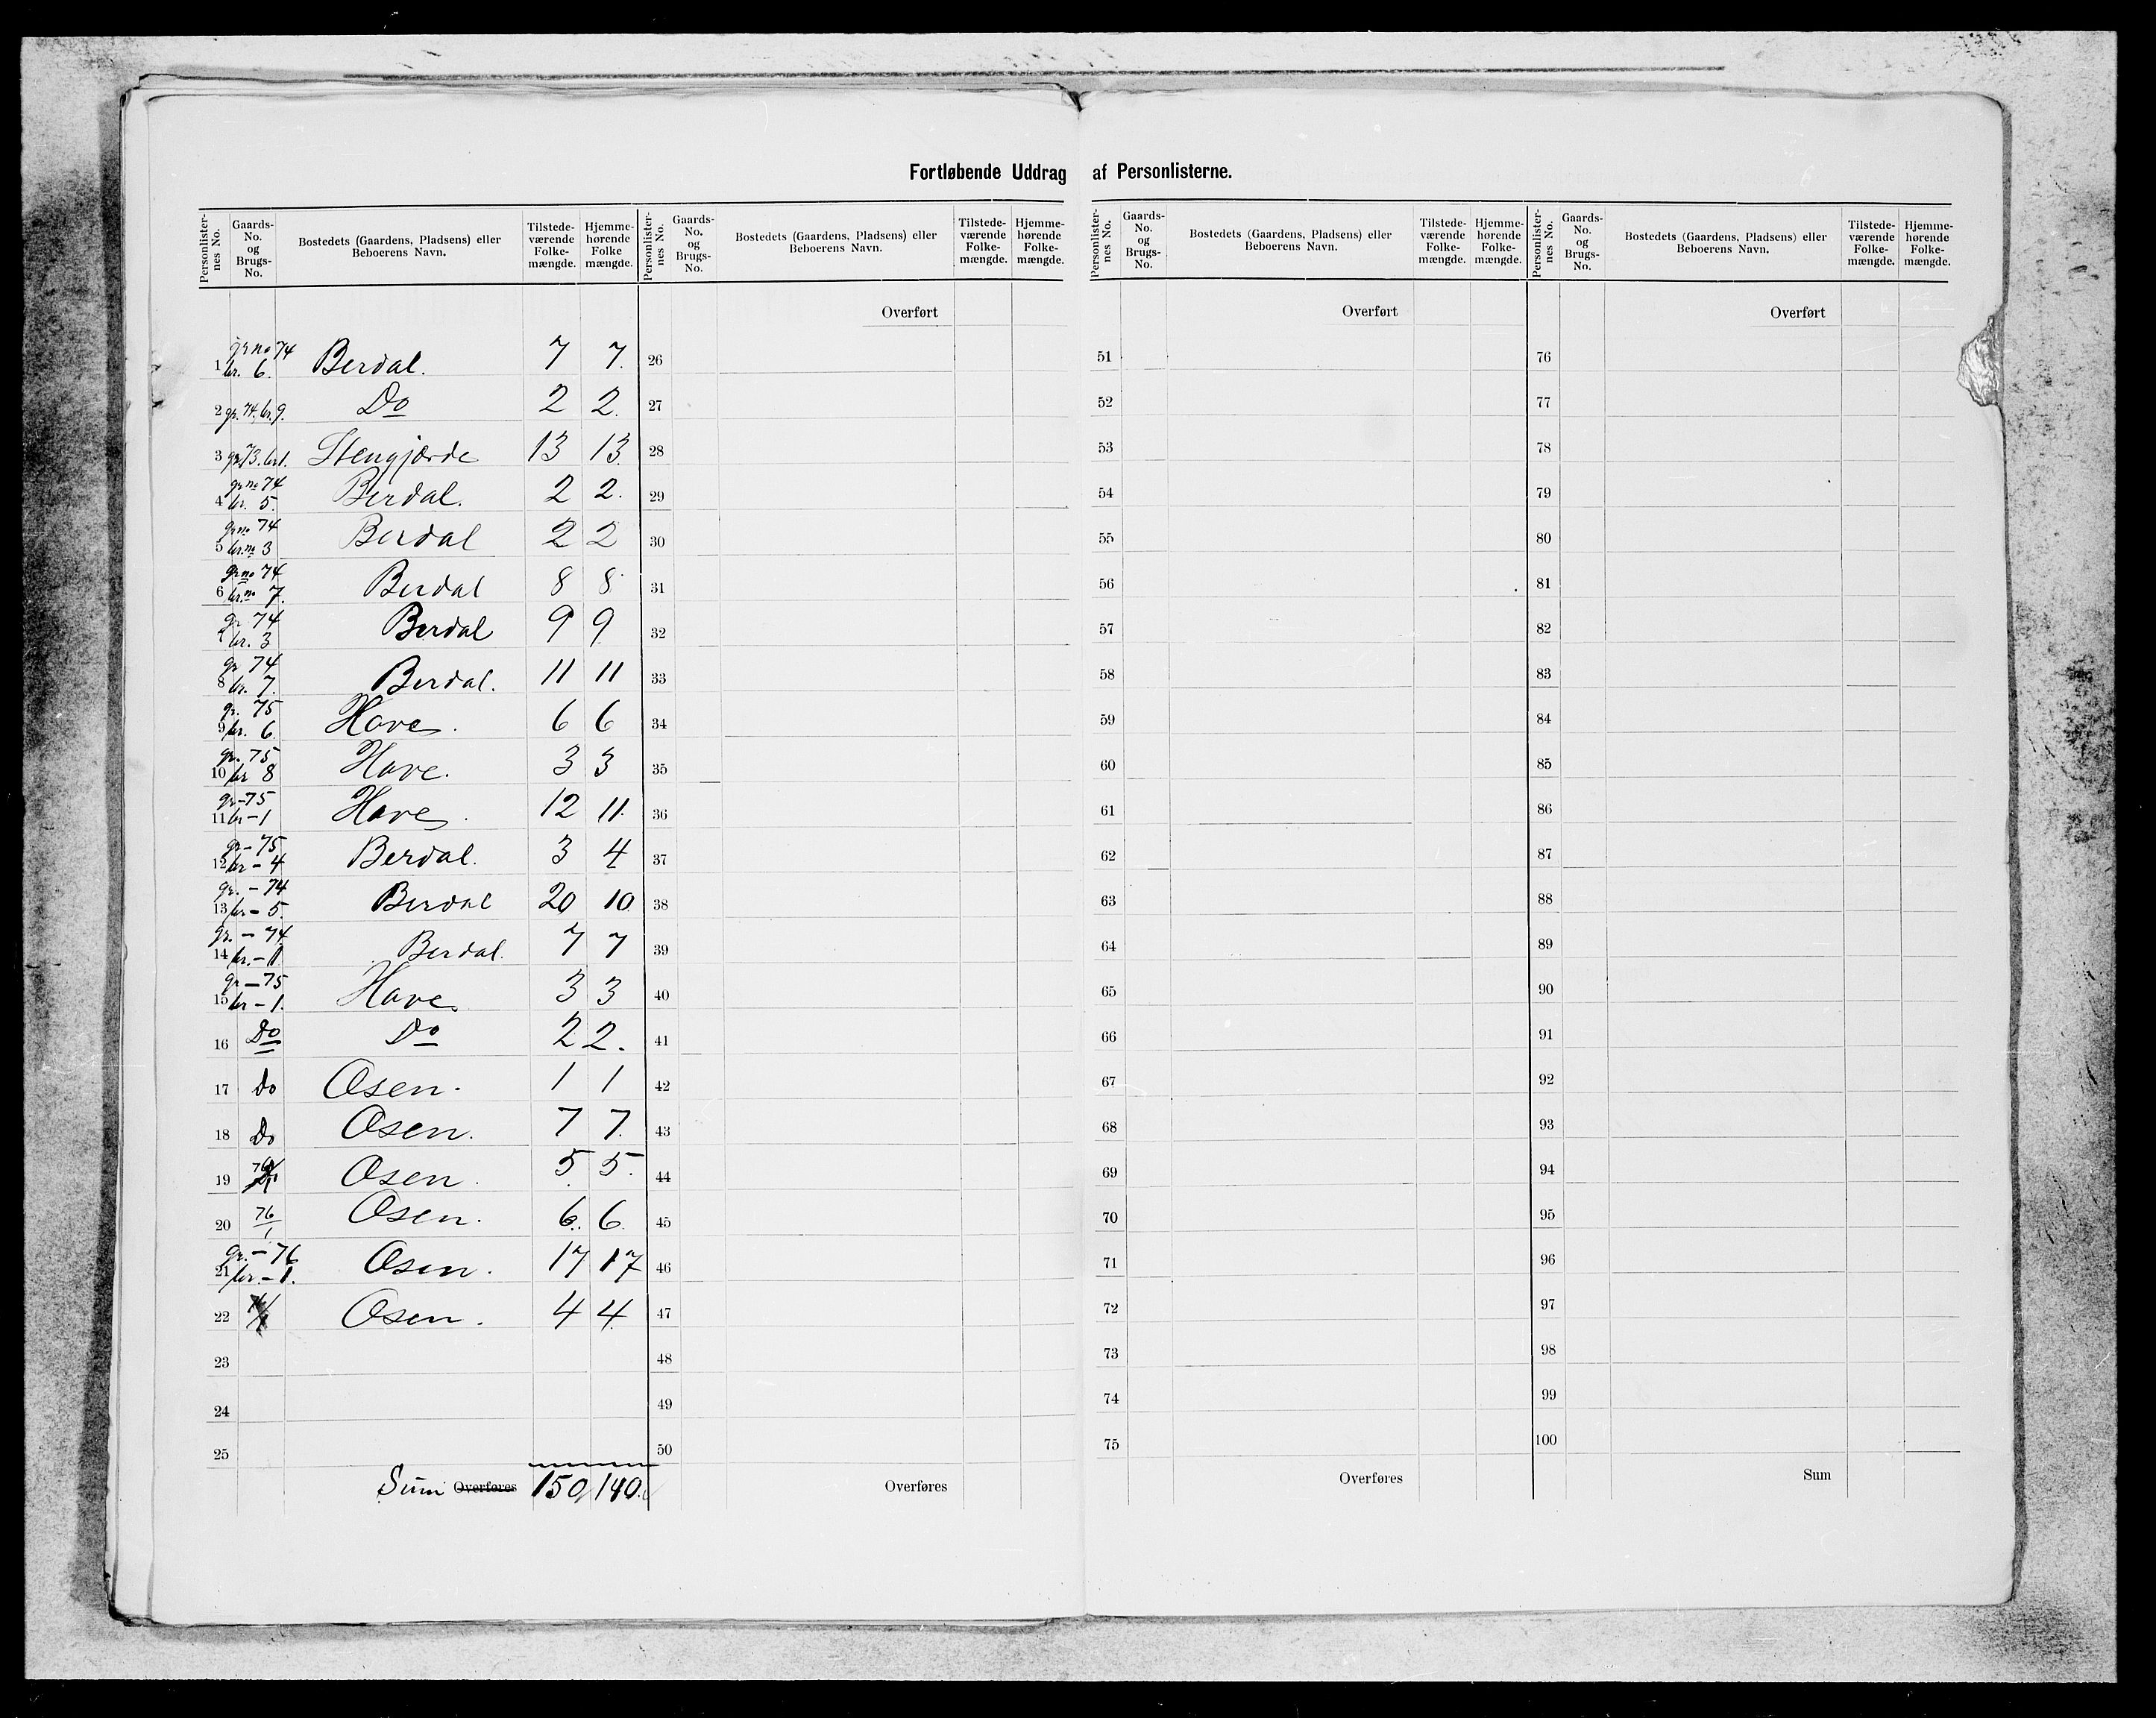 Fortløbende Uddrag af Personlisterne.
Personlister-nes No. | Gaards-No. og Brugs-No. | Bostedets (Gaardens, Pladsens) eller Beboerens Navn. | Tilstede-værende Folke-mængde. | Hjemme-hørende Folke mængde. | Personlister-nes No. | Gaards-No. og Brugs-No. | Bostedets (Gaardens, Pladsens) eller Beboerens Navn. | Tilstede-værende Folke-mængde. | Hjemme-hørende Folke-mængde.
Overført
1 gr no 74 br. 6. Berdal. 7 7. 26
2 gr. 74. br. 9. Do 2 2. 27
3 gr 73. br 1. Stengjærde 13 13. 28
4 gr no 74 br. 5. Berdal. 2 2. 29
5 gr no 74 br. no 3 Berdal 2 2 30
6 gr no 74 br. no 7. Berdal 8 8 31
gr 74 br. 3 Berdal 9 9 32
8 gr 74 br. 7. Berdal. 11 11 33
9 gr. 75 br. 6. Hove. 6 6 34
10 gr. 75 br 8 Hove. 3 3 35
11 gr-75 br-1 Hove. 12 11. 36
12 gr-75 br-4 Berdal. 3 4 37
13 gr.-74 br-5. Berdal 20 10 38
14 gr.-74 br.-1 Berdal. 7 7 39
15 gr-75 br-1. Hove. 3 3 40
16 Do Do 2 2. 41
17 Do Osen. 1 1 42
18 Do Osen. 7 7. 43
19 Osen. 5 5. 44
20 76/1 Osen. 6. 6. 45
21 gr.-76 br.-1. Osen. 17 17 46
22 Osen. 4 4 47
23 48
24 49
25 50
Sum Overføres 150 140. Overføres
Personlister-nes No. | Gaards-No. og Brugs-No. | Bostedets (Gaardens, Pladsens) eller Beboerens Navn. | Tilstede-værende Folke-mængde. | Hjemme-hørende Folke-mængde. | Personlister-nes No. | Gaards-No. og Brugs-No. | Bostedets (Gaardens, Pladsens) eller Beboerens Navn. | Tilstede-værende Folke-mængde. | Hjemme-hørende Folke-mængde.
Overført Overført
51 76
52 77
53 78
54 79
55 80
56 81
57 82
58 83
59 84
60 85
61 86
62 87
63 88
64 89
65 90
66 91
67 92
68 93
69 94
70 95
71 96
72 97
73 98
74 99
75 100
Overføres Sum